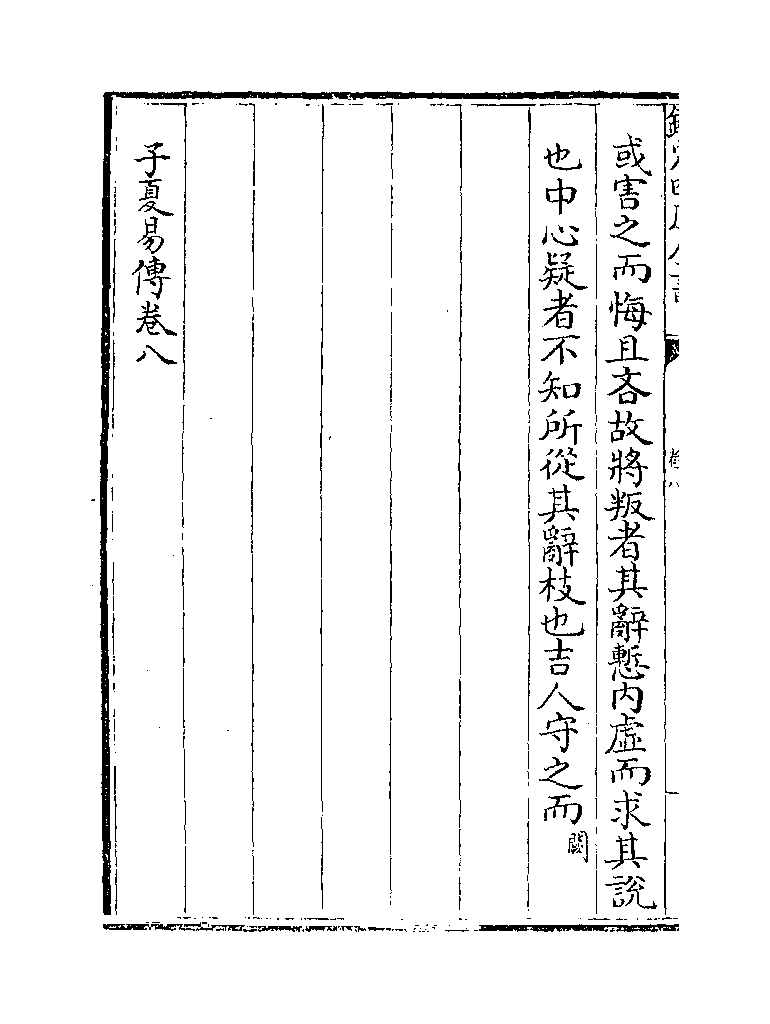 或害之而悔且吝故將叛者其辭慙内虛而求其說
也中心疑者不知所從其辭枝也吉人守之而闕
子夏易傳卷八